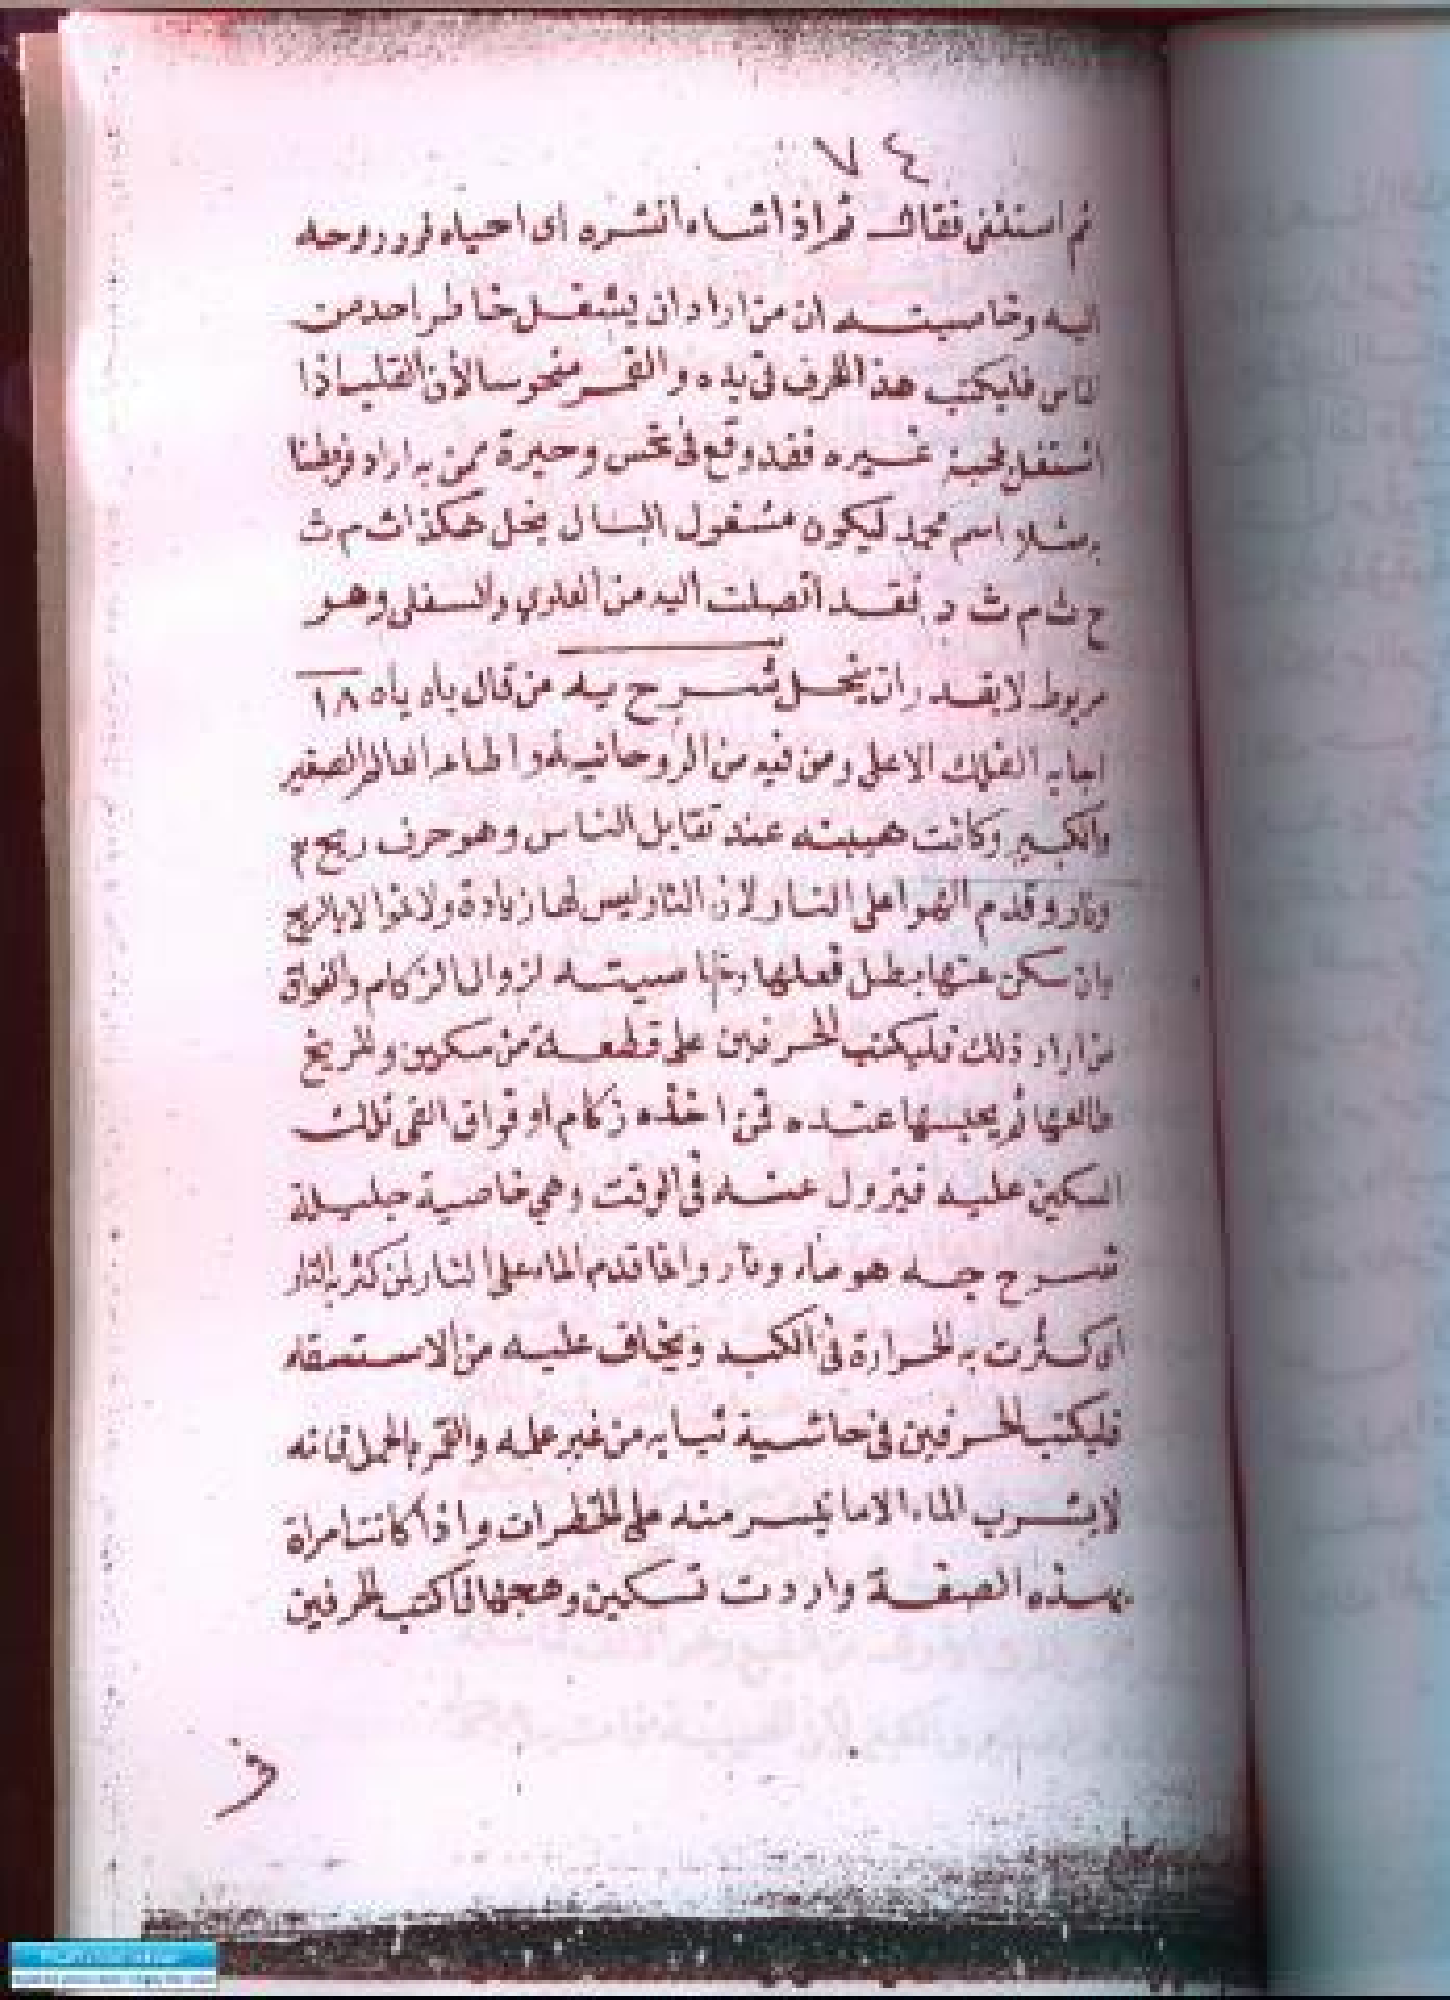 ٧٤
ثم استثنى فقال ثم اذا شاء انشره اى احياه فرد روحه
اليه وخاصيته ان من اراد ان يشغل خاطر احد من
الناس فليكتب هذا الحرف فى يده والقمر منحوسا لأن القلب اذا
اشتغل لمحبة غيره فقد وقع فى نحس وحيرة ممن به اراد
مثلا اسم محمد ليكون مشغول البال بخل هكذا ث م ث
ح ث م ث د فقد اتصلت اليه من العلوي والسفلى وهو
مربوط لا يقدر ان ينحل شرح يه من قال ياه ياه ١٨
اجابه الفلك الاعلى ومن فيه من الروحانية واطاعه العالم الصغير
والكبير وكانت هيبته عند تقابل الناس وهو حرف ريح
ونار وقدم الهوا على النار لأن النار ليس لها زيادة ولا نموا الا بالريح
وان سكن عنها بطل فعلها وخاصيته لزوال الزكام والفواق
من اراد ذلك فليكتب الحرفين على قطعة من سكين والمريخ
طالعها ثم يحبسها عنده فمن اخذه زكام او فواق القى تلك
السكين عليه فيزول عنه فى الوقت وهي خاصية جليلة
شرح جه هو ماء ونار وانما قدم الماء على النار لمن كثر به النار
او كثرت به الحرارة فى الكبد ويخاف عليه من الاستسقاء
فليكتب الحرفين فى حاشية ثيابه من غير علمه والقمر بالحمل فانه
لا يشرب الماء الا ما تيسر منه على الخطرات واذا كانت امراة
بهذه الصفة واردت تسكين وهجها فاكتب الحرفين
فى